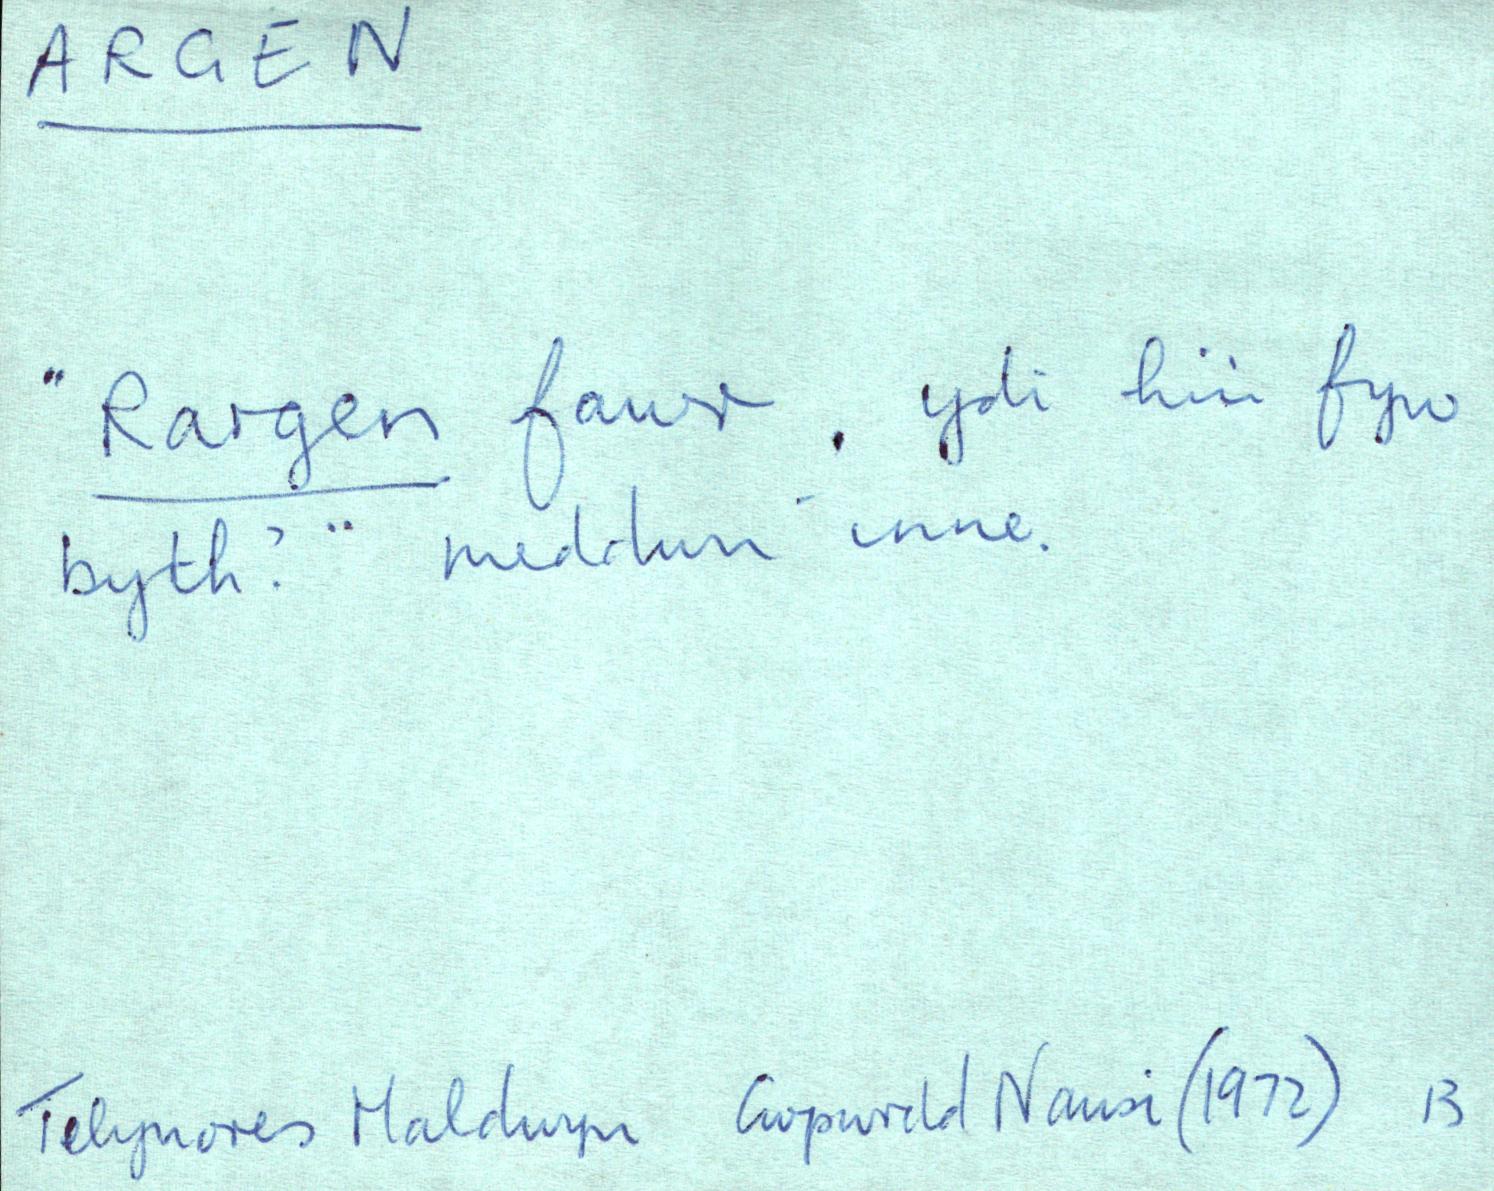 ARGEN
"Rargen fawr, ydi hi'n fyw
byth?" meddwn inne.
Telynores Maldwyn Cwpwrdd Nansi (1972) 13